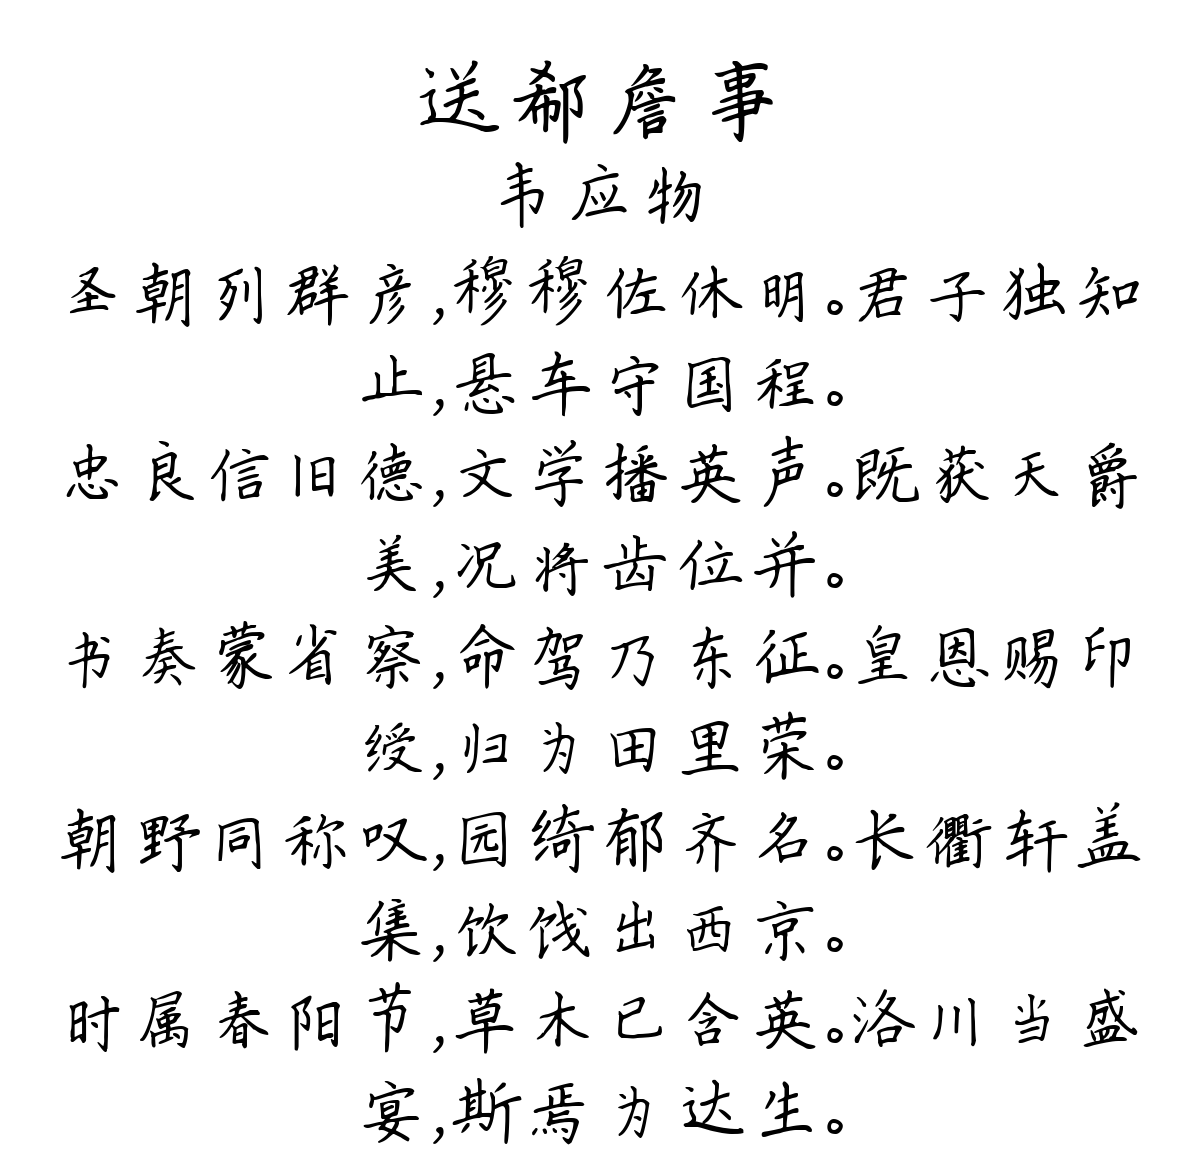 送郗詹事
韦应物
圣朝列群彦,穆穆佐休明。君子独知
止,悬车守国程。
忠良信旧德,文学播英声。既获天爵
美,况将齿位并。
书奏蒙省察,命驾乃东征。皇恩赐印
绶,归为田里荣。
朝野同称叹,园绮郁齐名。长衢轩盖
集,饮饯出西京。
时属春阳节,草木已含英。洛川当盛
宴,斯焉为达生。